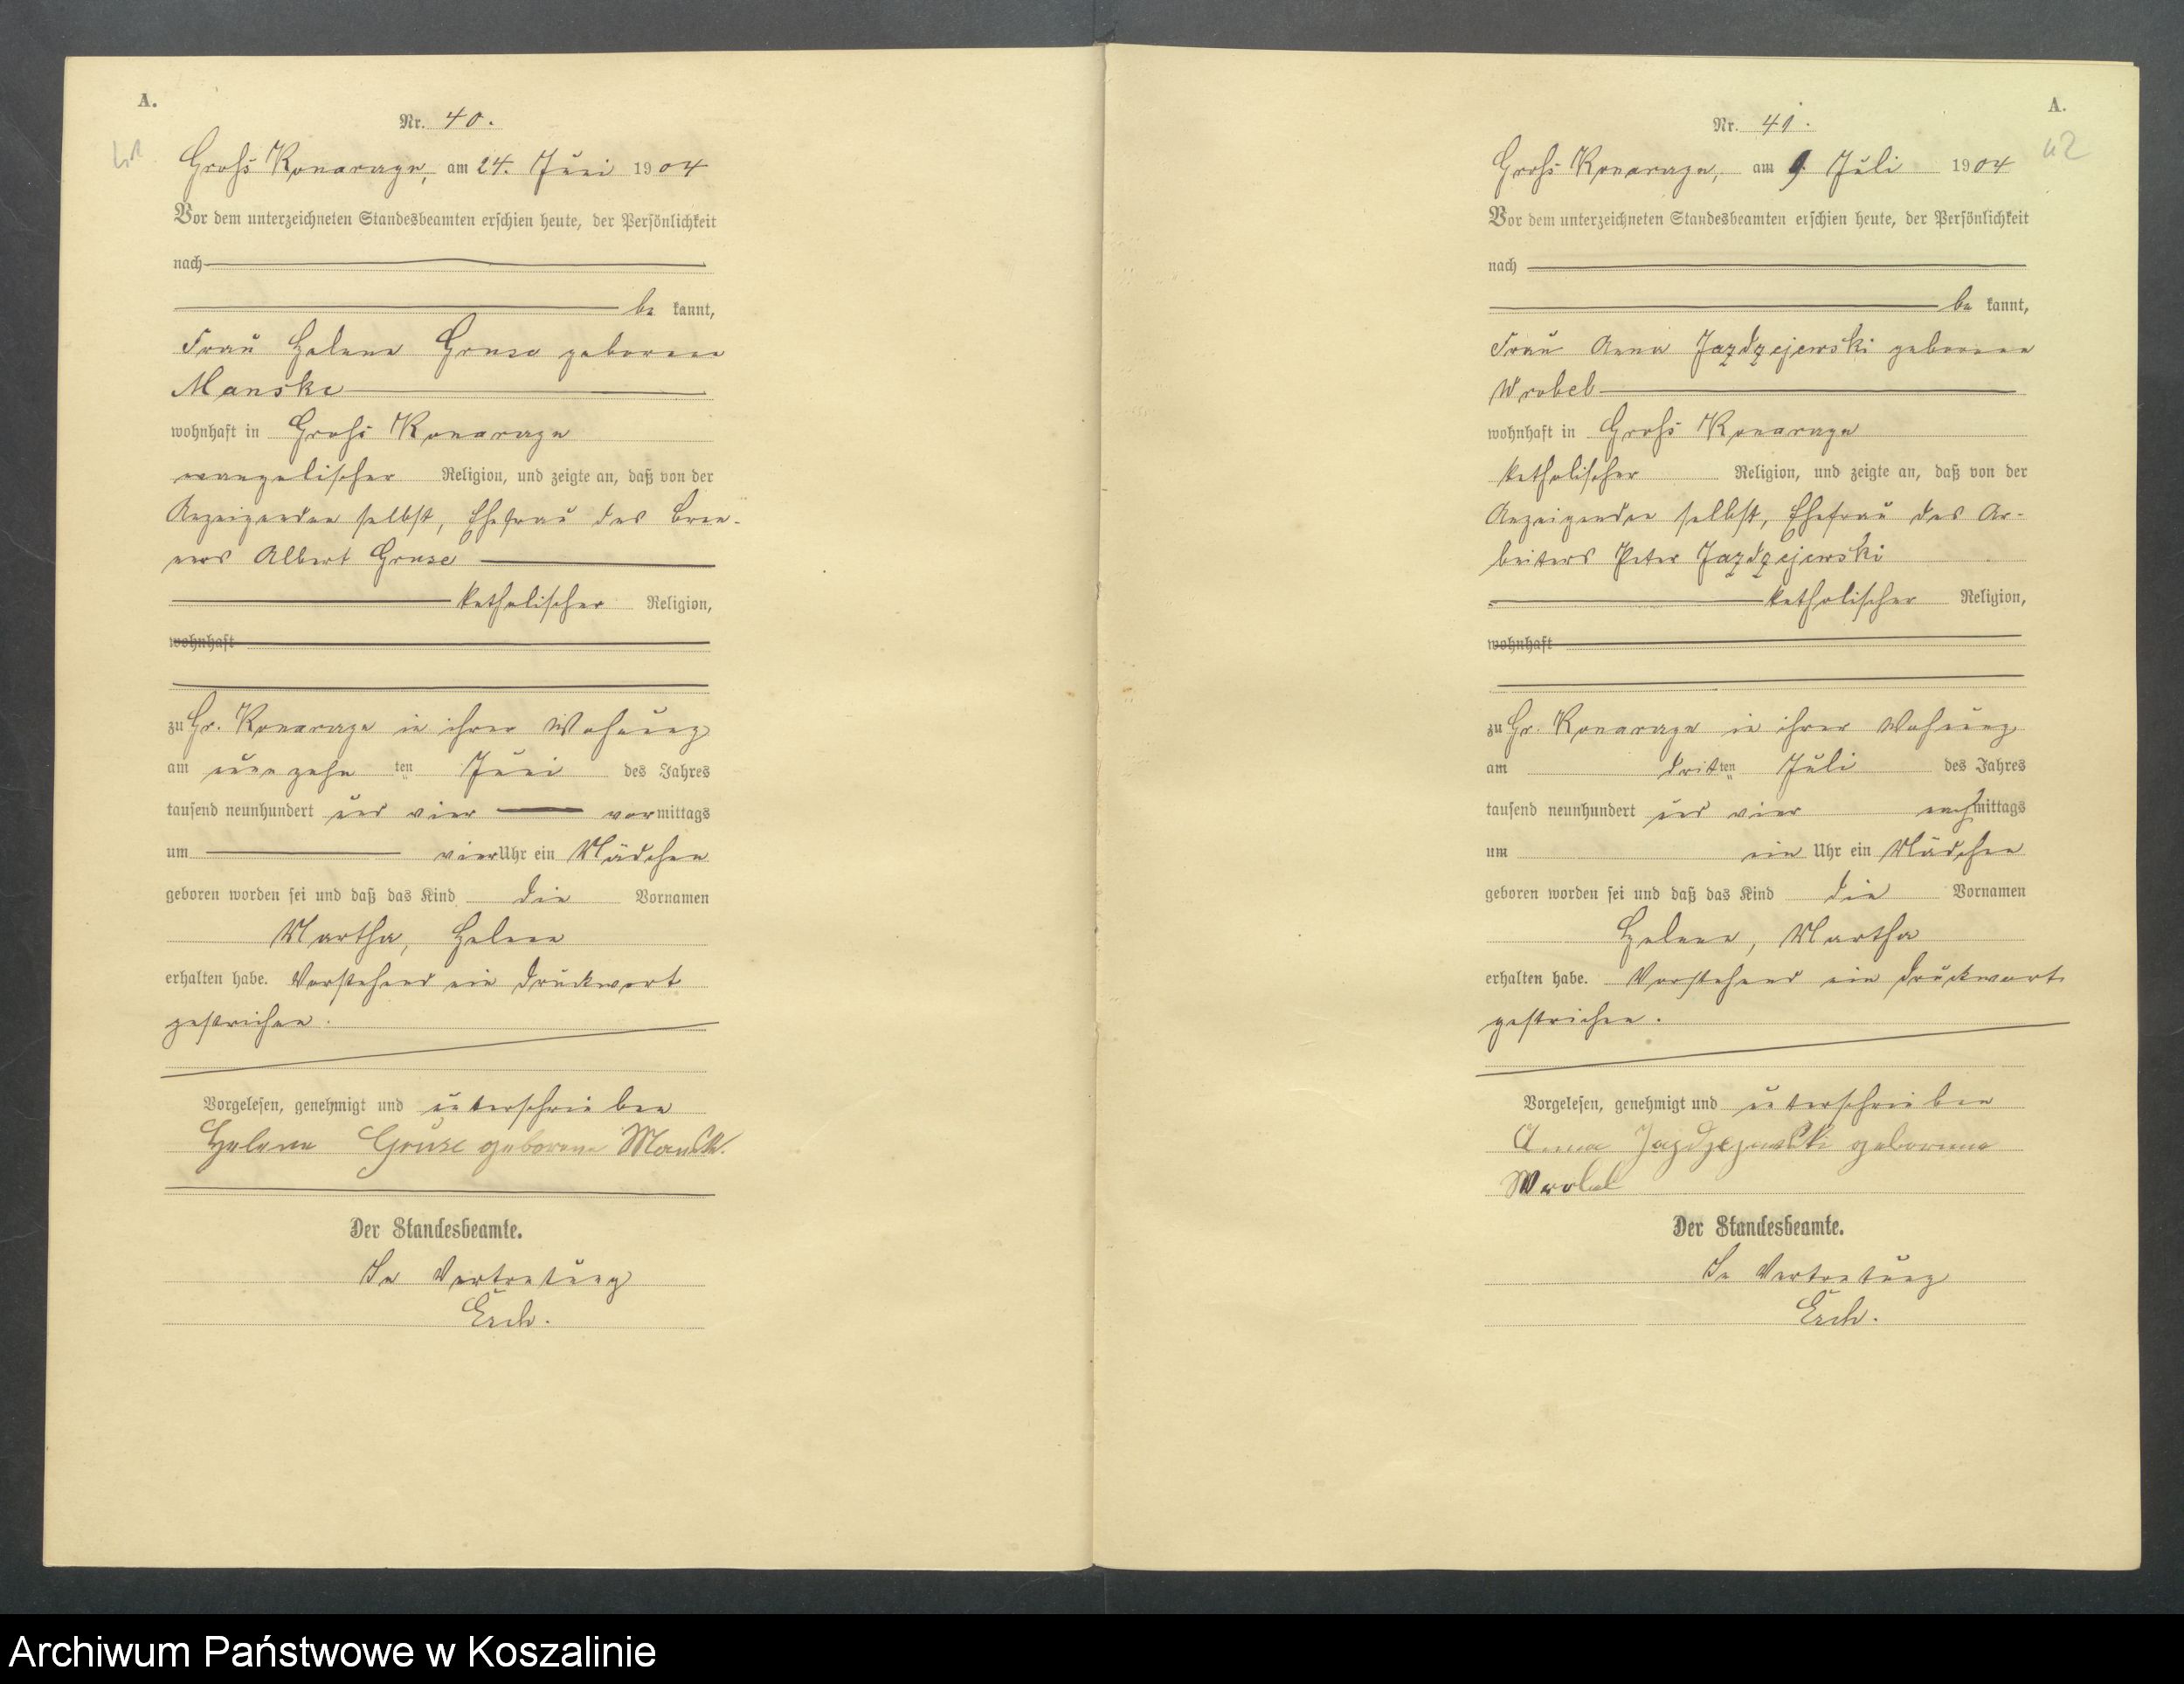 A.
Nr. 40.
Groß Konarczyn, am 24. Juni 1904
Vor dem unterzeichneten Standesbeamten erschien heute, der Persönlichkeit
nach
be kannt,
Frau Helene Gruse geborene
Manske
wohnhaft in Groß Konarczyn
evangelischer Religion, und zeigte an, daß von der
Anzeigenden selbst, Ehefrau des Bren-
ners Albert Gruse
katholischer Religion,
wohnhaft
zu Gr. Konarczyn in ihrer Wohnung
am neunzehn ten Juni des Jahres
tausend neunhundert und vier vormittags
um vier Uhr ein Mädchen
geboren worden sei und daß das Kind die Vornamen
Martha, Helene
erhalten habe. Vorstehend ein Druckwort
gestrichen.
Vorgelesen, genehmigt und unterschrieben
Helene Gruse geborene Manske.
Der Standesbeamte.
In Vertretung
A.
42
Nr. 41.
Groß Konarczyn, am 9 Juli 1904
Vor dem unterzeichneten Standesbeamten erschien heute, der Persönlichkeit
nach
be kannt,
Frau Anna Jazdzejewski geborene
Wrobel
wohnhaft in Groß Konarczyn
katholischer Religion, und zeigte an, daß von der
Anzeigenden selbst, Ehefrau des Ar-
beiters Peter Jazdzejewski
katholischer Religion,
wohnhaft
zu Gr. Konarczyn in ihrer Wohnung
am dritten Juli des Jahres
tausend neunhundert und vier nachmittags
um ein Uhr ein Mädchen
geboren worden sei und daß das Kind die Vornamen
Helene, Martha
erhalten habe. Vorstehend ein Druckwort
gestrichen.
Vorgelesen, genehmigt und unterschrieben
Anna Jazdzejewski geborene
Wrobel
Der Standesbeamte.
In Vertretung
Archiwum Państwowe w Koszalinie